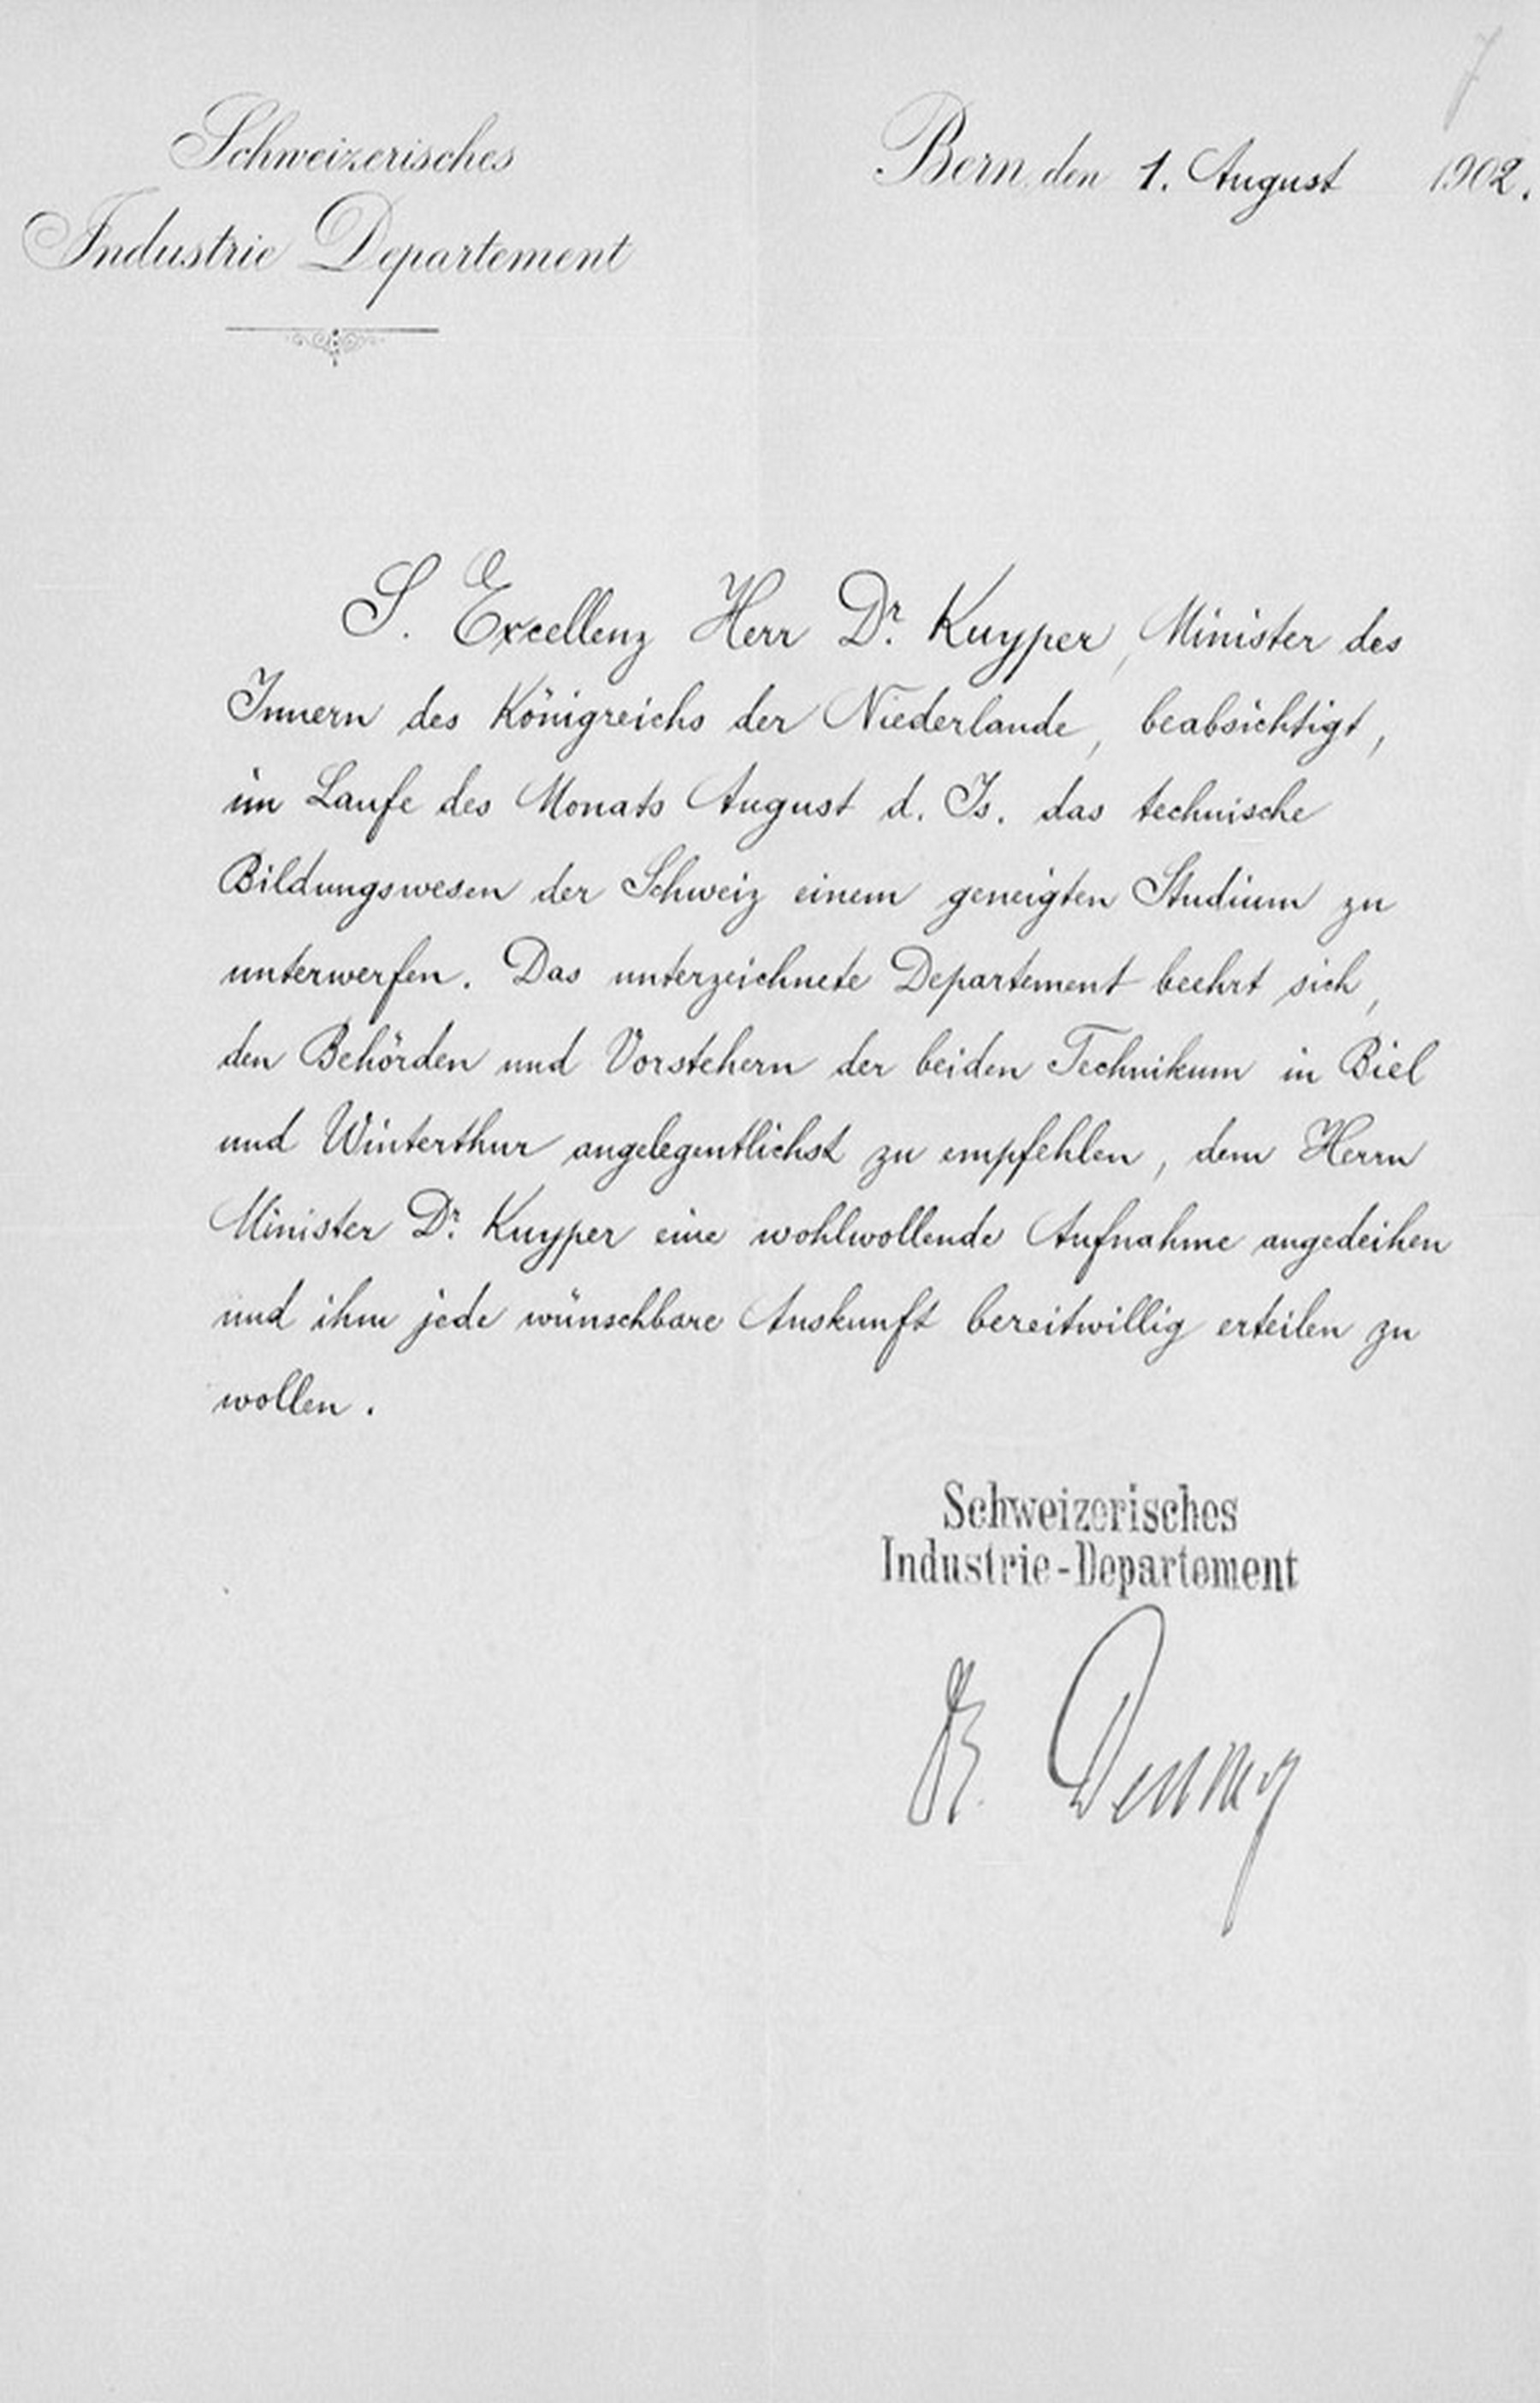 7
Schweizerisches
Industrie Departement
Bern, den 1. August 1902.
S. Excellenz Herr Dr. Kuyper, Minister des
Innern des Königreichs der Niederlande, beabsichtigt,
im Laufe des Monats August d. Js. das technische
Bildungswesen der Schweiz einem geneigten Studium zu
unterwerfen. Das unterzeichnete Departement beehrt sich,
den Behörden und Vorstehern der beiden Technikum in Biel
und Winterthur angelegentlichst zu empfehlen, dem Herrn
Minister Dr. Kuyper eine wohlwollende Aufnahme angedeihen
und ihm jede wünschbare Auskunft bereitwillig erteilen zu
wollen.
Schweizerisches
Industrie-Departement